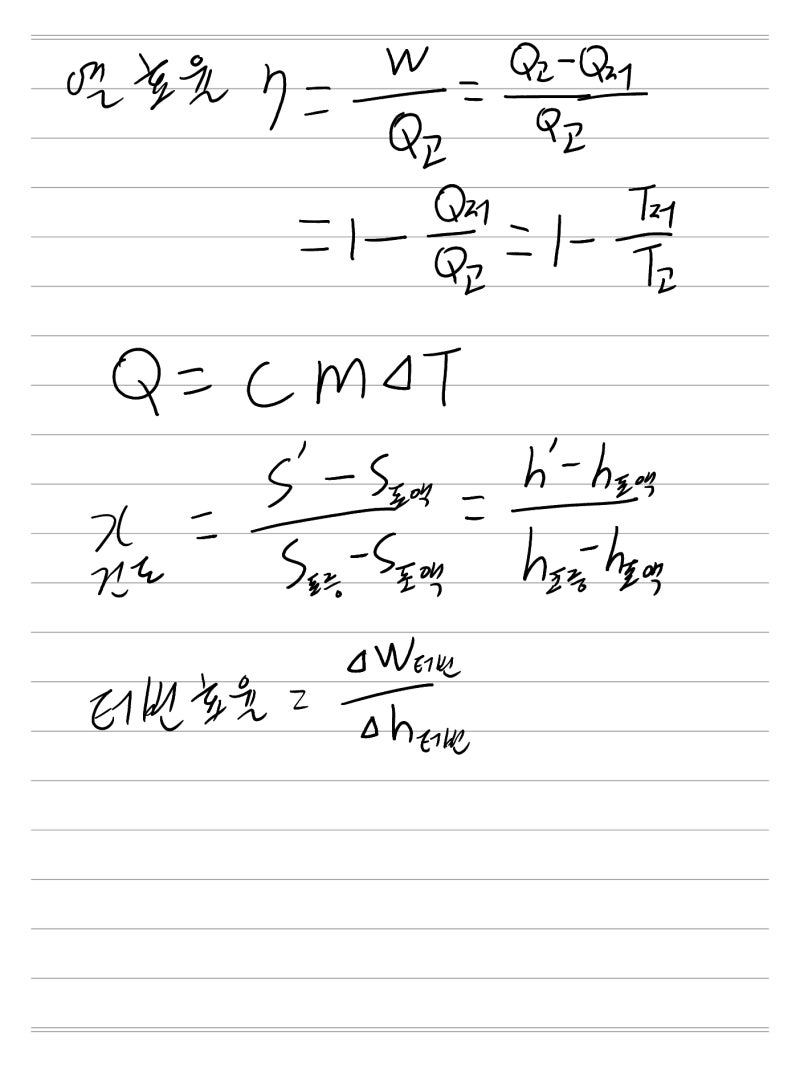 열효율 η = W/Q고 = (Q고-Q저)/Q고
= 1 - Q저/Q고 = 1 - T저/T고
Q = C m ΔT
x 건도 = (S' - S포액)/(S포증 - S포액) = (h' - h포액)/(h포증 - h포액)
터빈효율 = ΔW터빈/Δh터빈